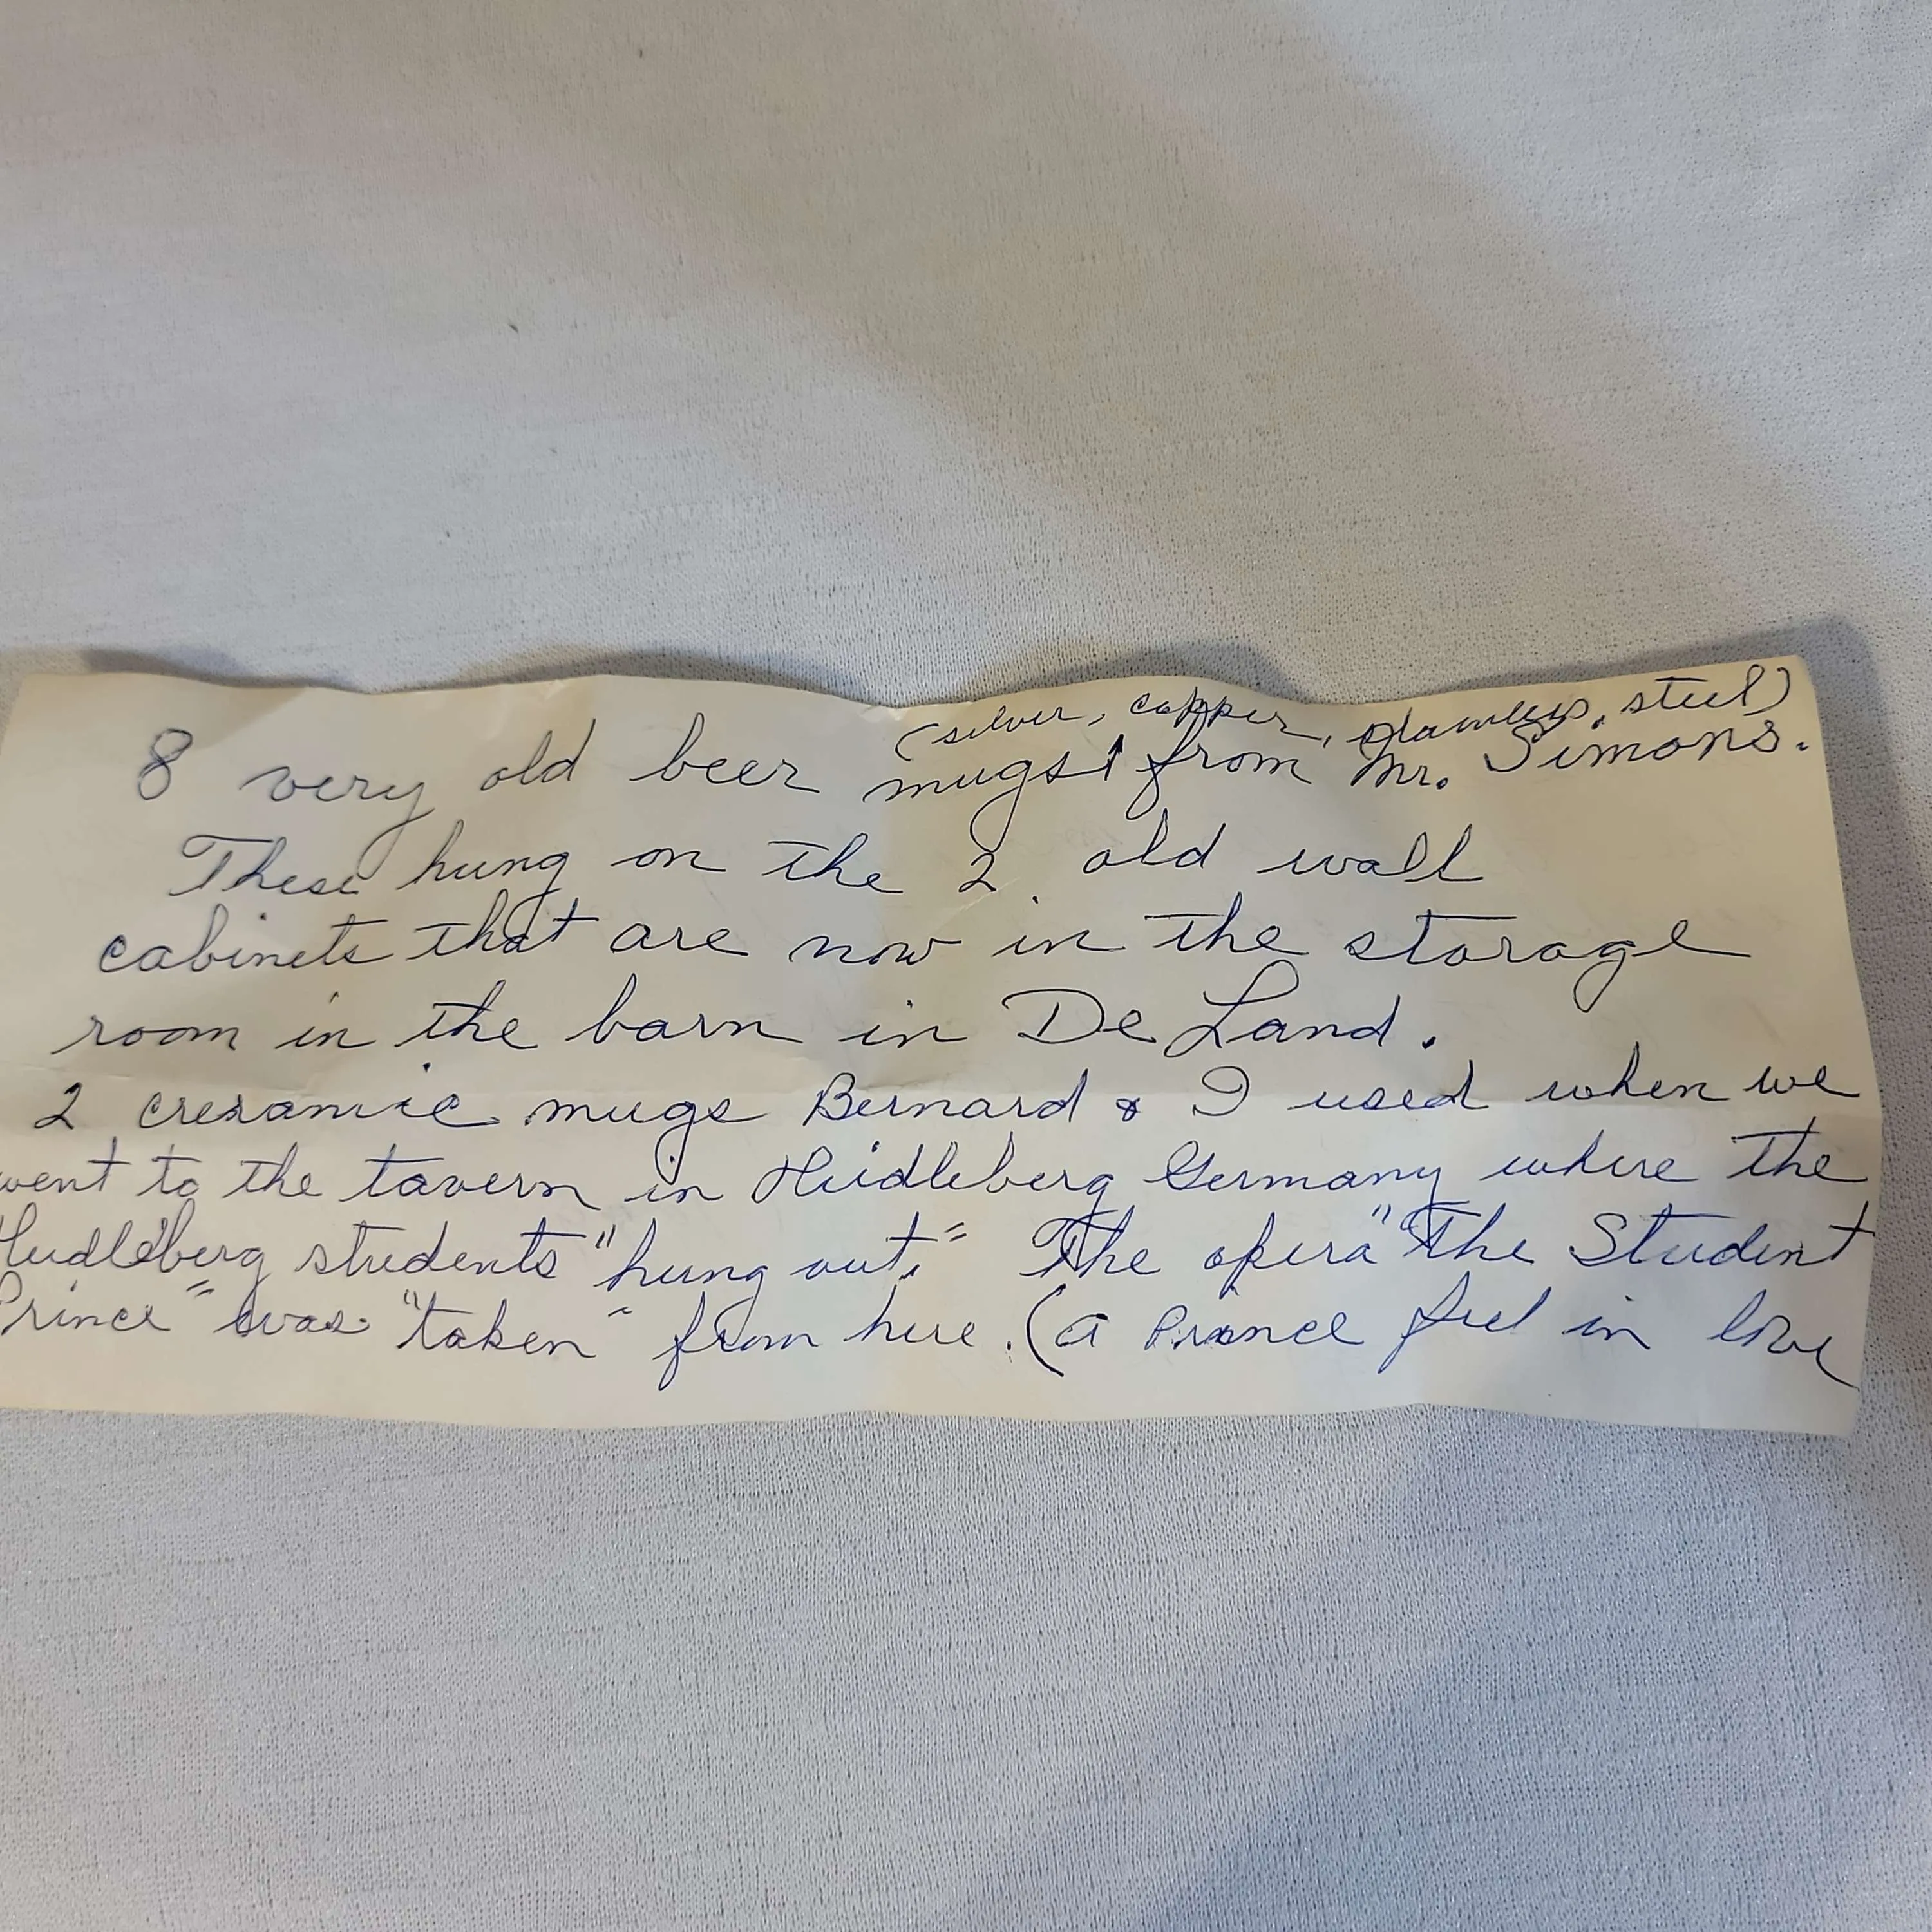 (silver, copper, stainless, steel)
8 very old beer mugs from Mr. Simons.
These hung on the 2 old wall
cabinets that are now in the storage
room in the barn in De Land.
2 creramic mugs Bernard & I used when we
went to the tavern in Heidleberg Germany where the
Heidleberg students "hung out." The opera "The Student
Prince" was "taken" from here. (a Prince feel in love